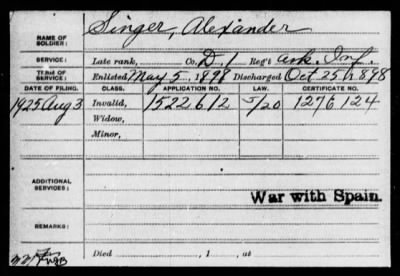 NAME OF SOLDIER: Singer, Alexander
SERVICE: Late rank, Co. D. 1 Reg't Ark. Inf.
TERM OF SERVICE: Enlisted May 5. 1898 Discharged Oct 25, 1898
DATE OF FILING. CLASS. APPLICATION NO. LAW. CERTIFICATE NO.
1925 Aug 3 Invalid, 1522612 5/20 1276124
Widow,
Minor,
ADDITIONAL SERVICES:
War with Spain.
REMARKS:
Died , 1 , at